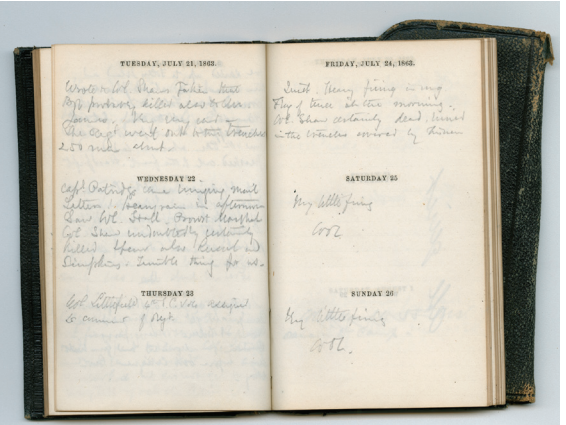 TUESDAY, JULY 21, 1863.
Wrote to Col. Shaw's
killed also
The Regt went out to the trenches
250 men
WEDNESDAY 22
Capt. Partridge came bringing mail
Letters. Heavy rain in afternoon
Saw Col. Hall, Provost Marshal
Col. Shaw undoubtedly certainly
killed. also Russel and
Simpkins. Terrible thing for us.
THURSDAY 23
Col. Littlefield 4th S.C. Vols. assigned
to command of Regt.
FRIDAY, JULY 24, 1863.
Quiet. Heavy firing in
Flag of truce in the morning.
Col. Shaw certainly dead. buried
in the trenches covered by
SATURDAY 25
Very little firing
Cool
SUNDAY 26
Very little firing
Cool.